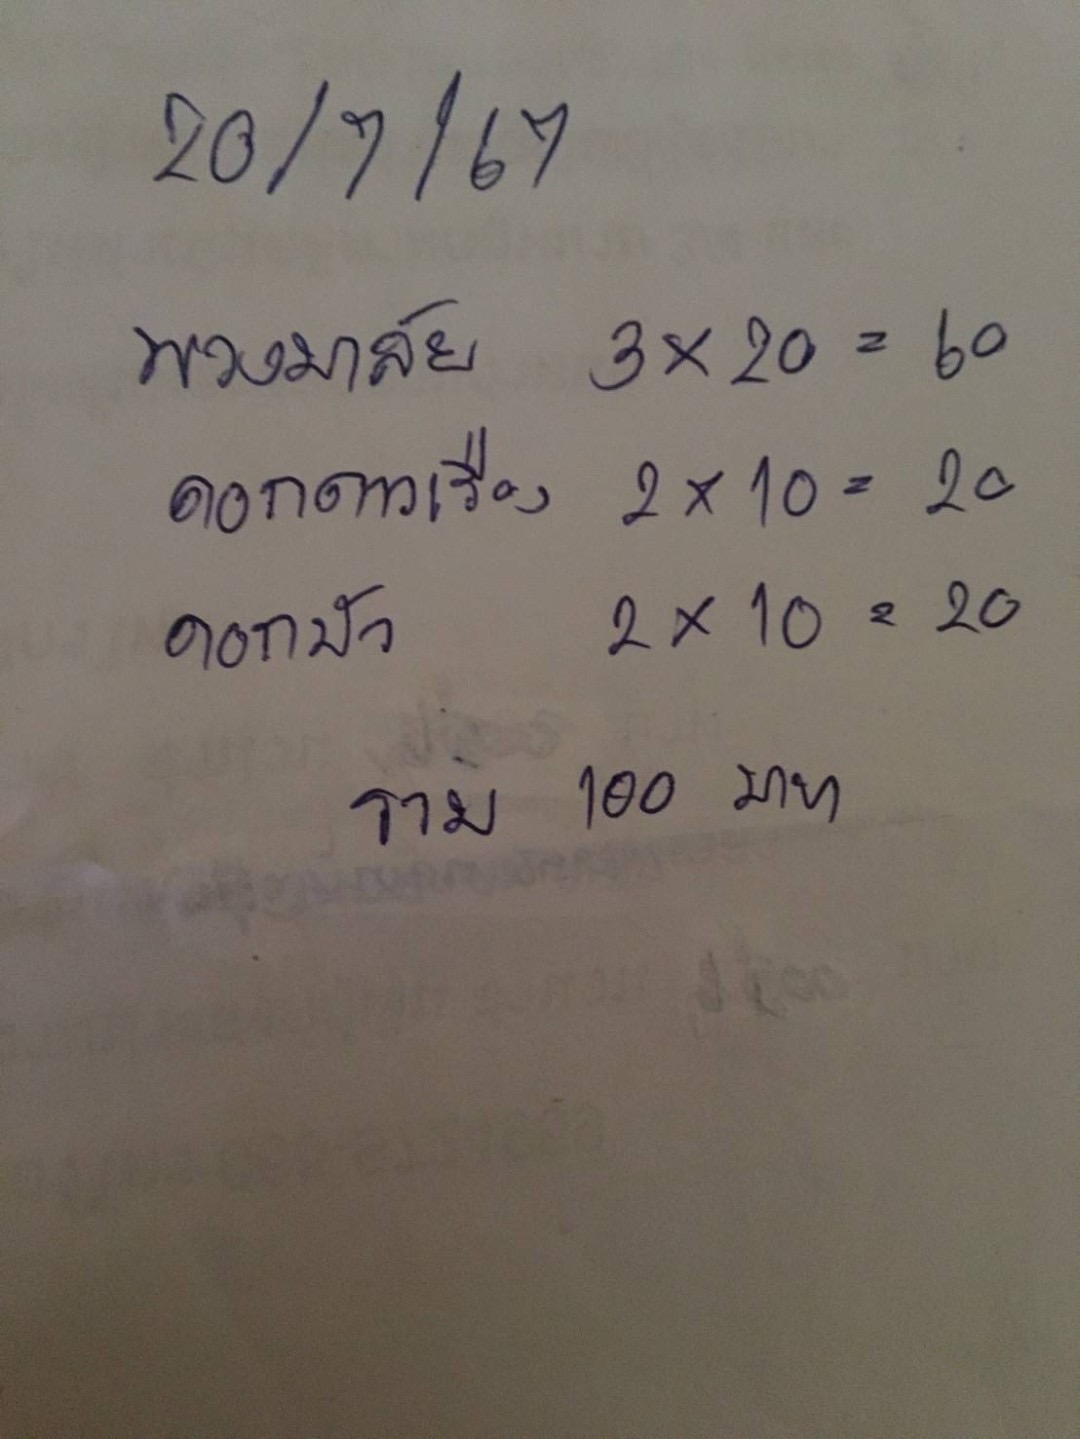 20/7/67
พวงมาลัย 3 × 20 = 60
ดอกดาวเรือง 2 × 10 = 20
ดอกบัว 2 × 10 = 20
รวม 100 บาท